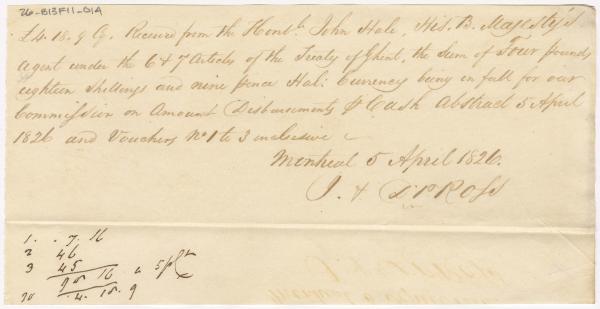 26-B13F11-01A
£4.18.9 Cy. Received from the Honble. John Hale, His. B. Majesty's
agent under the 6 & 7 Articles of the Treaty of Ghent, the Sum of Four pounds
eighteen Shillings and nine pence Hal: Currency being in full for our
Commission on Amount Disbursements & Cash Abstract 5 April
1826 and Vouchers No 1 to 3 inclusive
Montreal 5 April 1826.
J. & D Ross
1. . 7. 16
2 46
3 45
98 16 a 5 p Ct
4. 18. 9